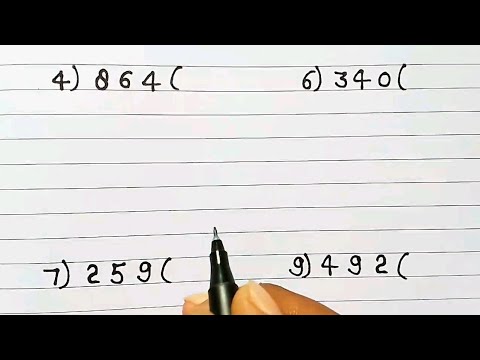 4) 864( 6) 340(
7) 259( 9) 492(